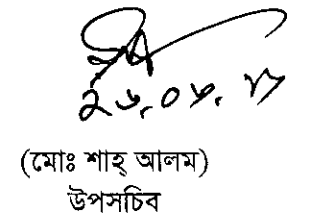 ২৬.০৮.১৮
(মোঃ শাহ্ আলম)
উপসচিব